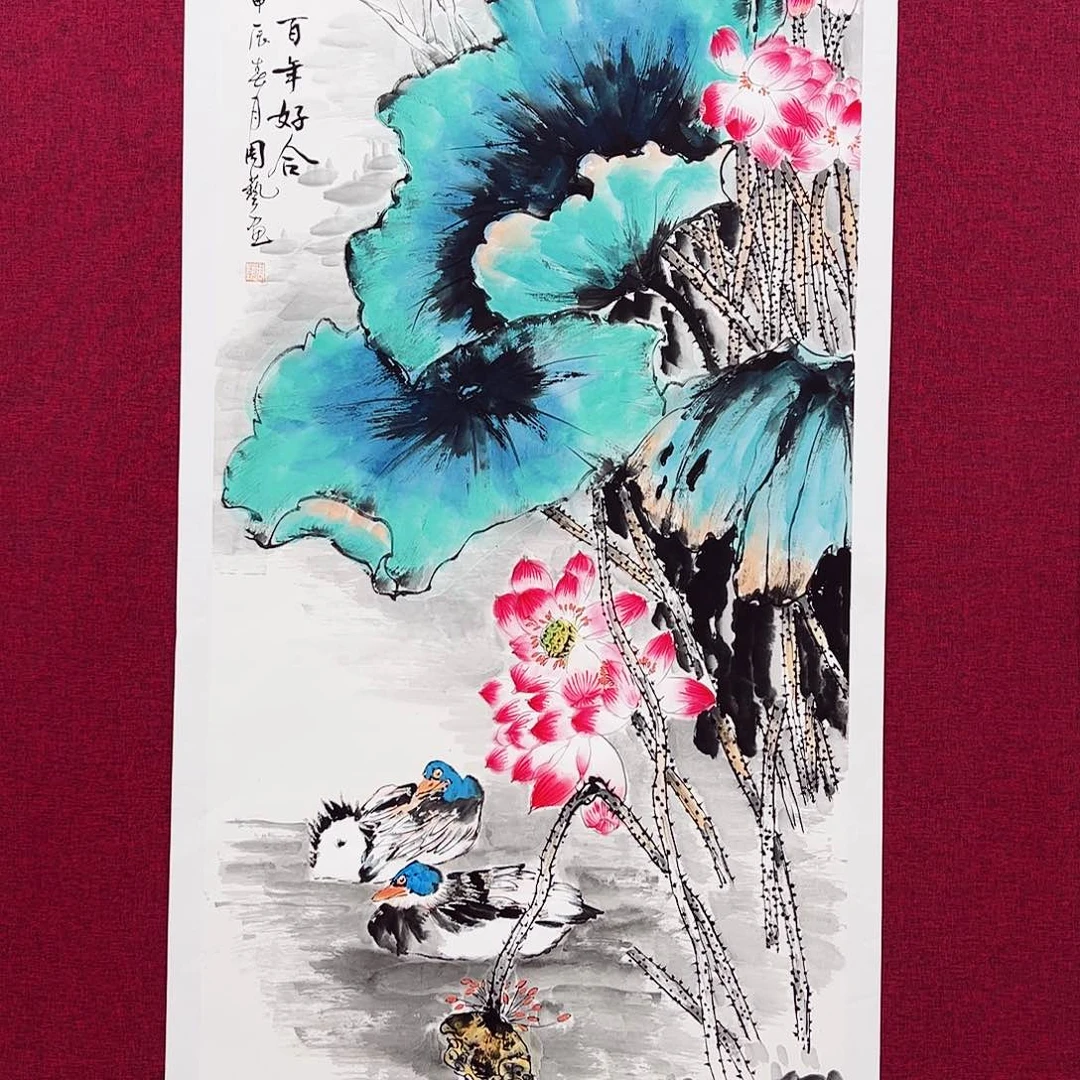 百年好合
甲辰春月周藝画